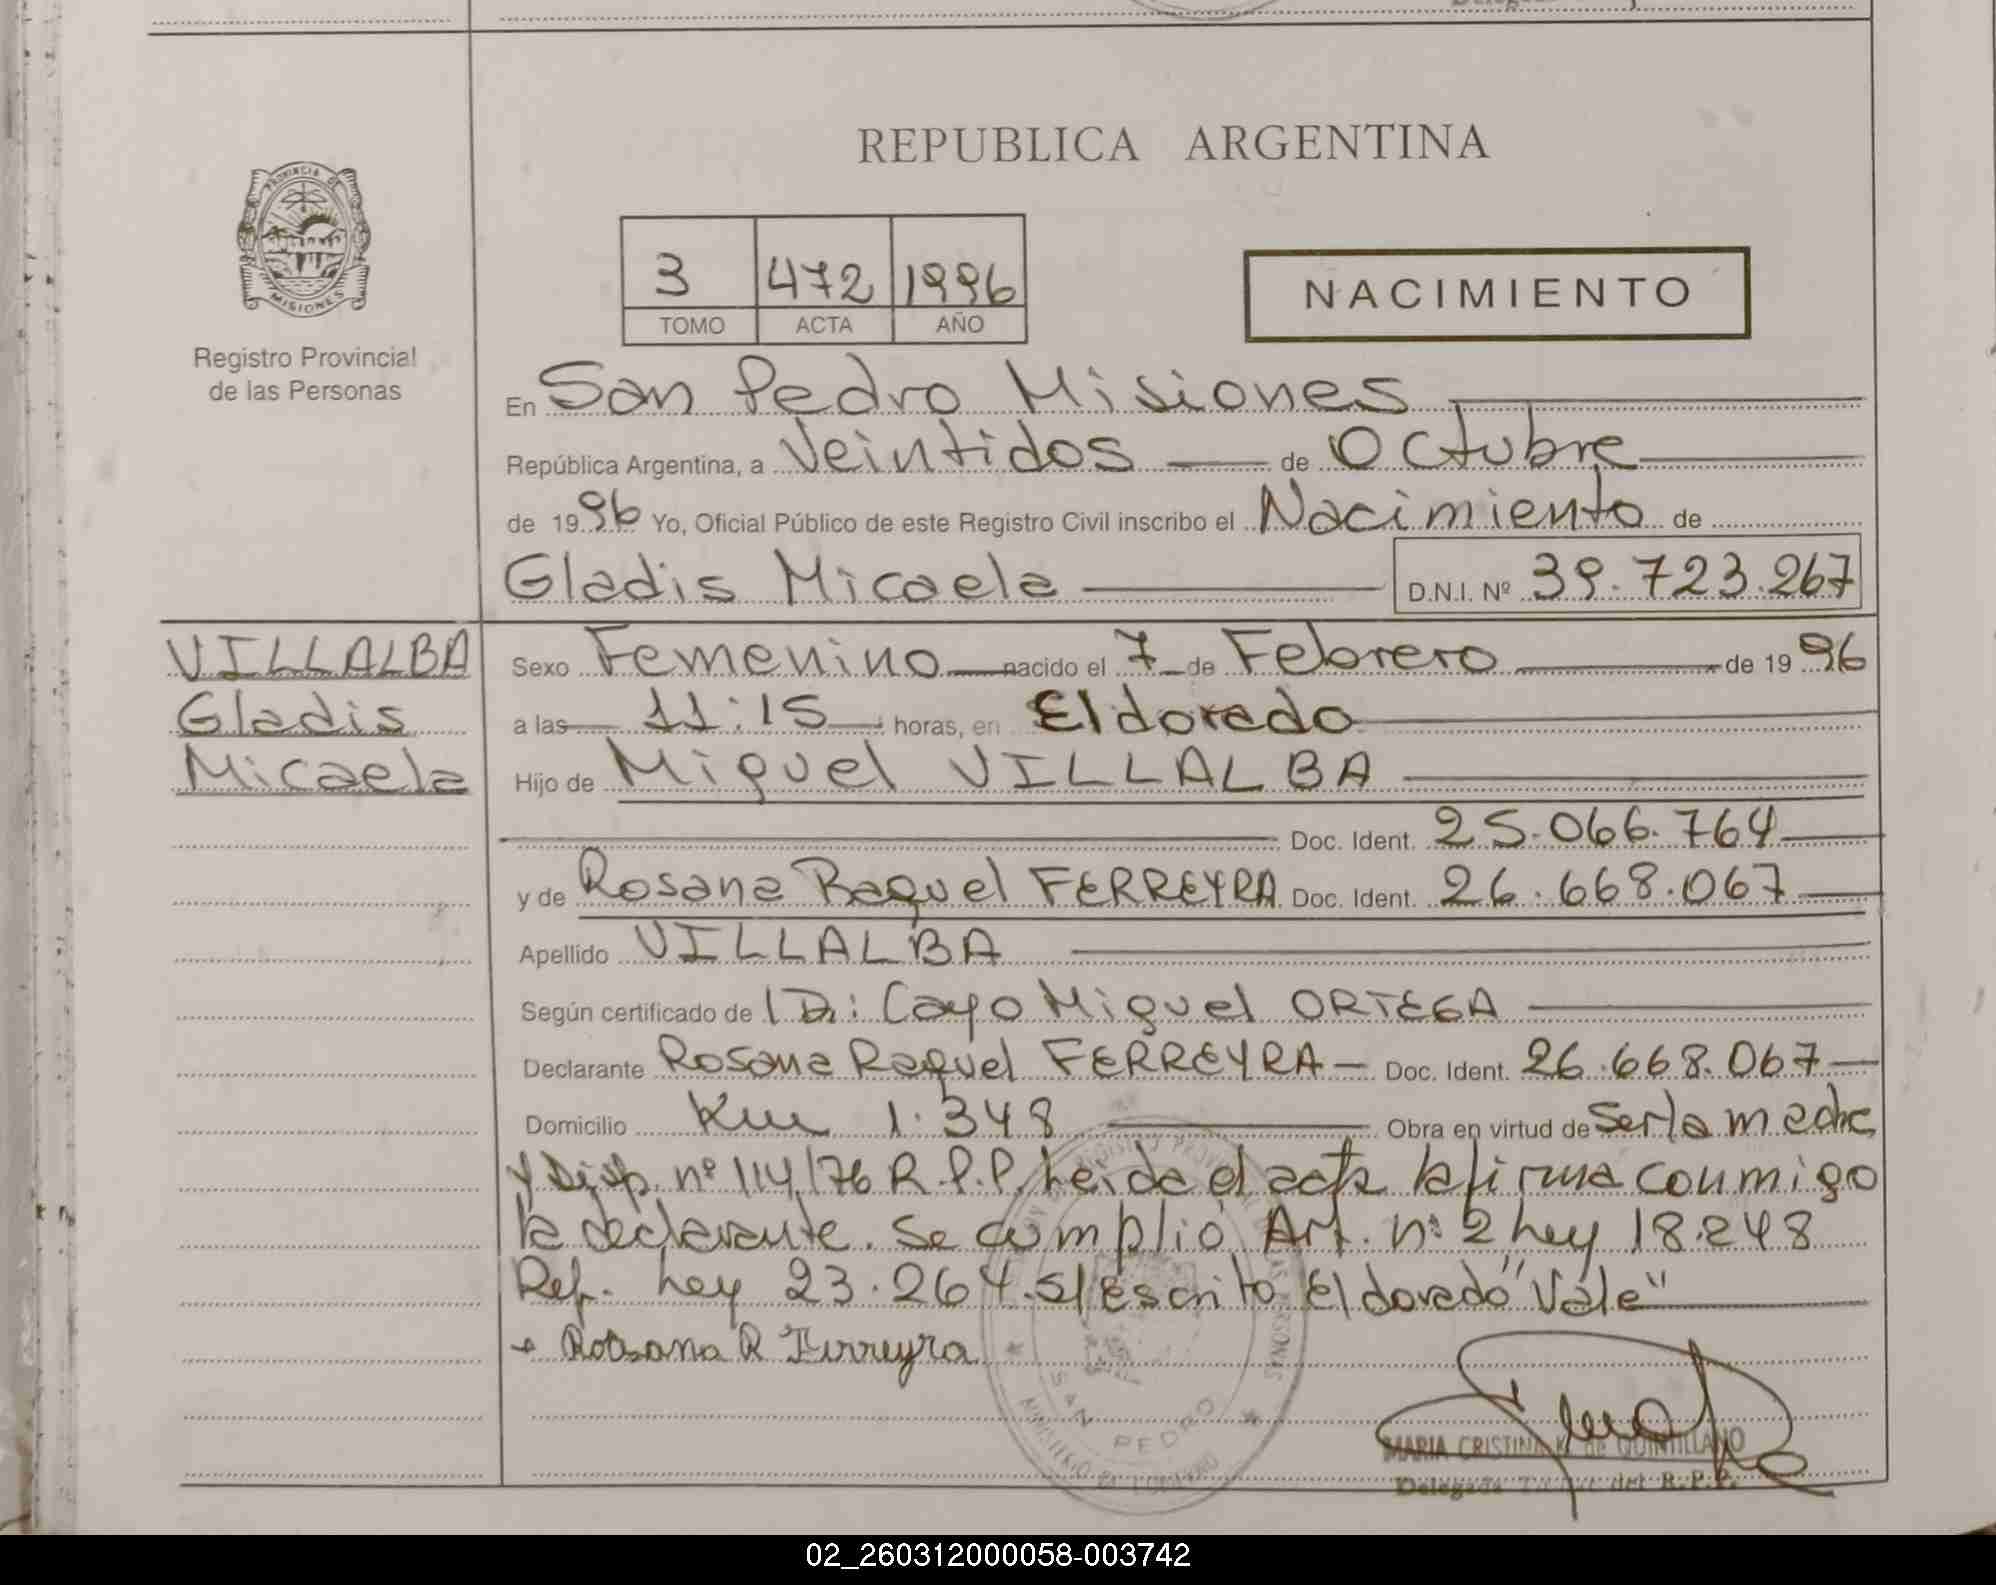 REPUBLICA ARGENTINA
PROVINCIA DE
MISIONES
Registro Provincial
de las Personas
3 472 1996
TOMO ACTA AÑO
NACIMIENTO
En San Pedro Misiones
República Argentina, a Veintidos de Octubre
de 1996 Yo, Oficial Público de este Registro Civil inscribo el Nacimiento de
Gladis Micaela D.N.I. Nº 39.723.267
VILLALBA
Gladis
Micaela
Sexo Femenino nacido el 7 de Febrero de 1996
a las 11:15 horas, en Eldorado
Hijo de Miguel VILLALBA
Doc. Ident. 25.066.764
y de Rosana Raquel FERREYRA Doc. Ident. 26.668.067
Apellido VILLALBA
Según certificado de Dr: Cayo Miguel ORTEGA
Declarante Rosana Raquel FERREYRA Doc. Ident. 26.668.067
Domicilio Km 1.348 Obra en virtud de ser la madre
y Disp. nº 114/76 R.P.P. Leida el acta la firma conmigo
la declarante. Se cumplió Art. nº 2 Ley 18.248
Ref. Ley 23.264. s/escrito Eldorado "Vale"
Rossana R Ferreyra
SAN PEDRO
MARIA CRISTINA K. de QUINTILLANO
Delegada del R.P.P.
02_260312000058-003742